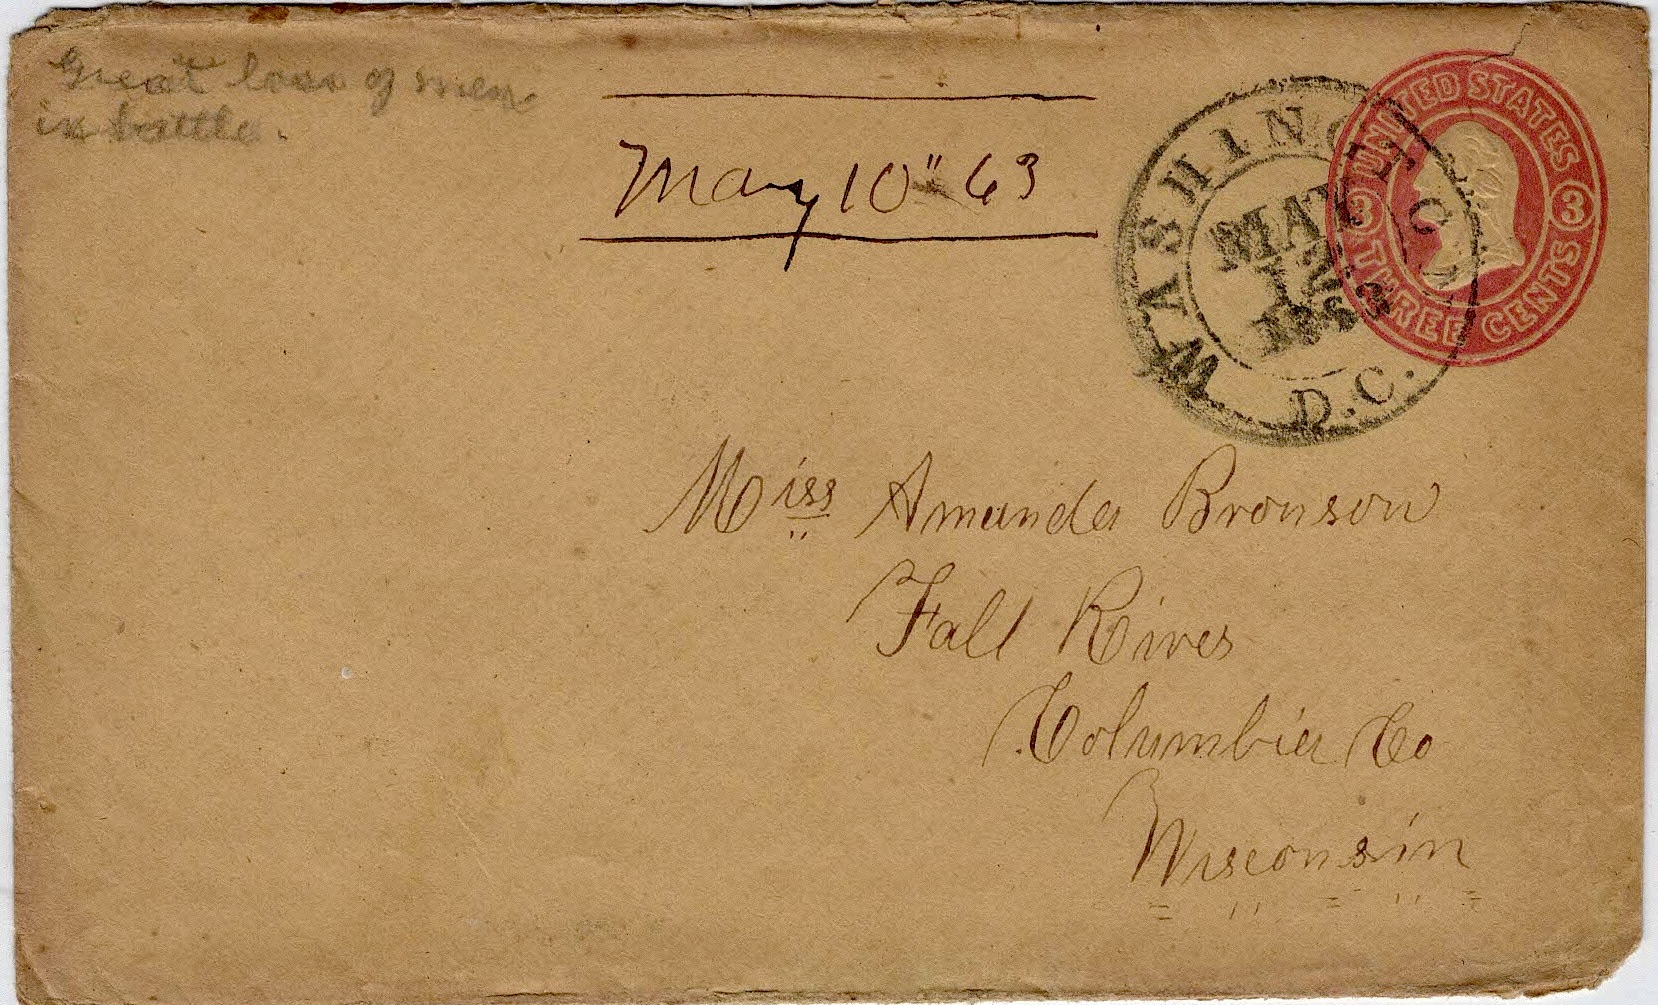 Great loss of men
in battle.
May 10" 63
WASHINGTON CITY
MAY
1863
D.C.
UNITED STATES
3 3
THREE CENTS
Miss Amanda Bronson
Fall River
Columbia Co
Wisconsin